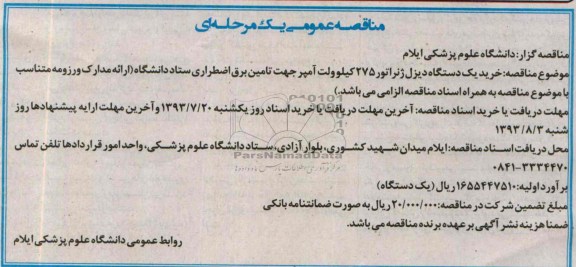 مناقصه عمومی یک مرحله‌ای
مناقصه گزار: دانشگاه علوم پزشکی ایلام
موضوع مناقصه: خرید یک دستگاه دیزل ژنراتور ۲۷۵ کیلو ولت آمپر جهت تامین برق اضطراری ستاد دانشگاه (ارائه مدارک و رزومه متناسب
با موضوع مناقصه به همراه اسناد مناقصه الزامی می باشد.)
مهلت دریافت یا خرید اسناد مناقصه: آخرین مهلت دریافت یا خرید اسناد روز یکشنبه ۱۳۹۳/۷/۲۰ و آخرین مهلت ارایه پیشنهادها روز
شنبه ۱۳۹۳/۸/۳
محل دریافت اسناد مناقصه: ایلام میدان شهید کشوری، بلوار آزادی، ستاد دانشگاه علوم پزشکی، واحد امور قراردادها تلفن تماس
۰۸۴۱-۳۳۳۴۴۷۰
برآورد اولیه: ۱۶۵۵۴۴۷۵۱۰ ریال (یک دستگاه)
مبلغ تضمین شرکت در مناقصه: ۲۰/۰۰۰/۰۰۰ ریال به صورت ضمانتنامه بانکی
ضمنا هزینه نشر آگهی بر عهده برنده مناقصه می باشد.
روابط عمومی دانشگاه علوم پزشکی ایلام
ParsNamadData